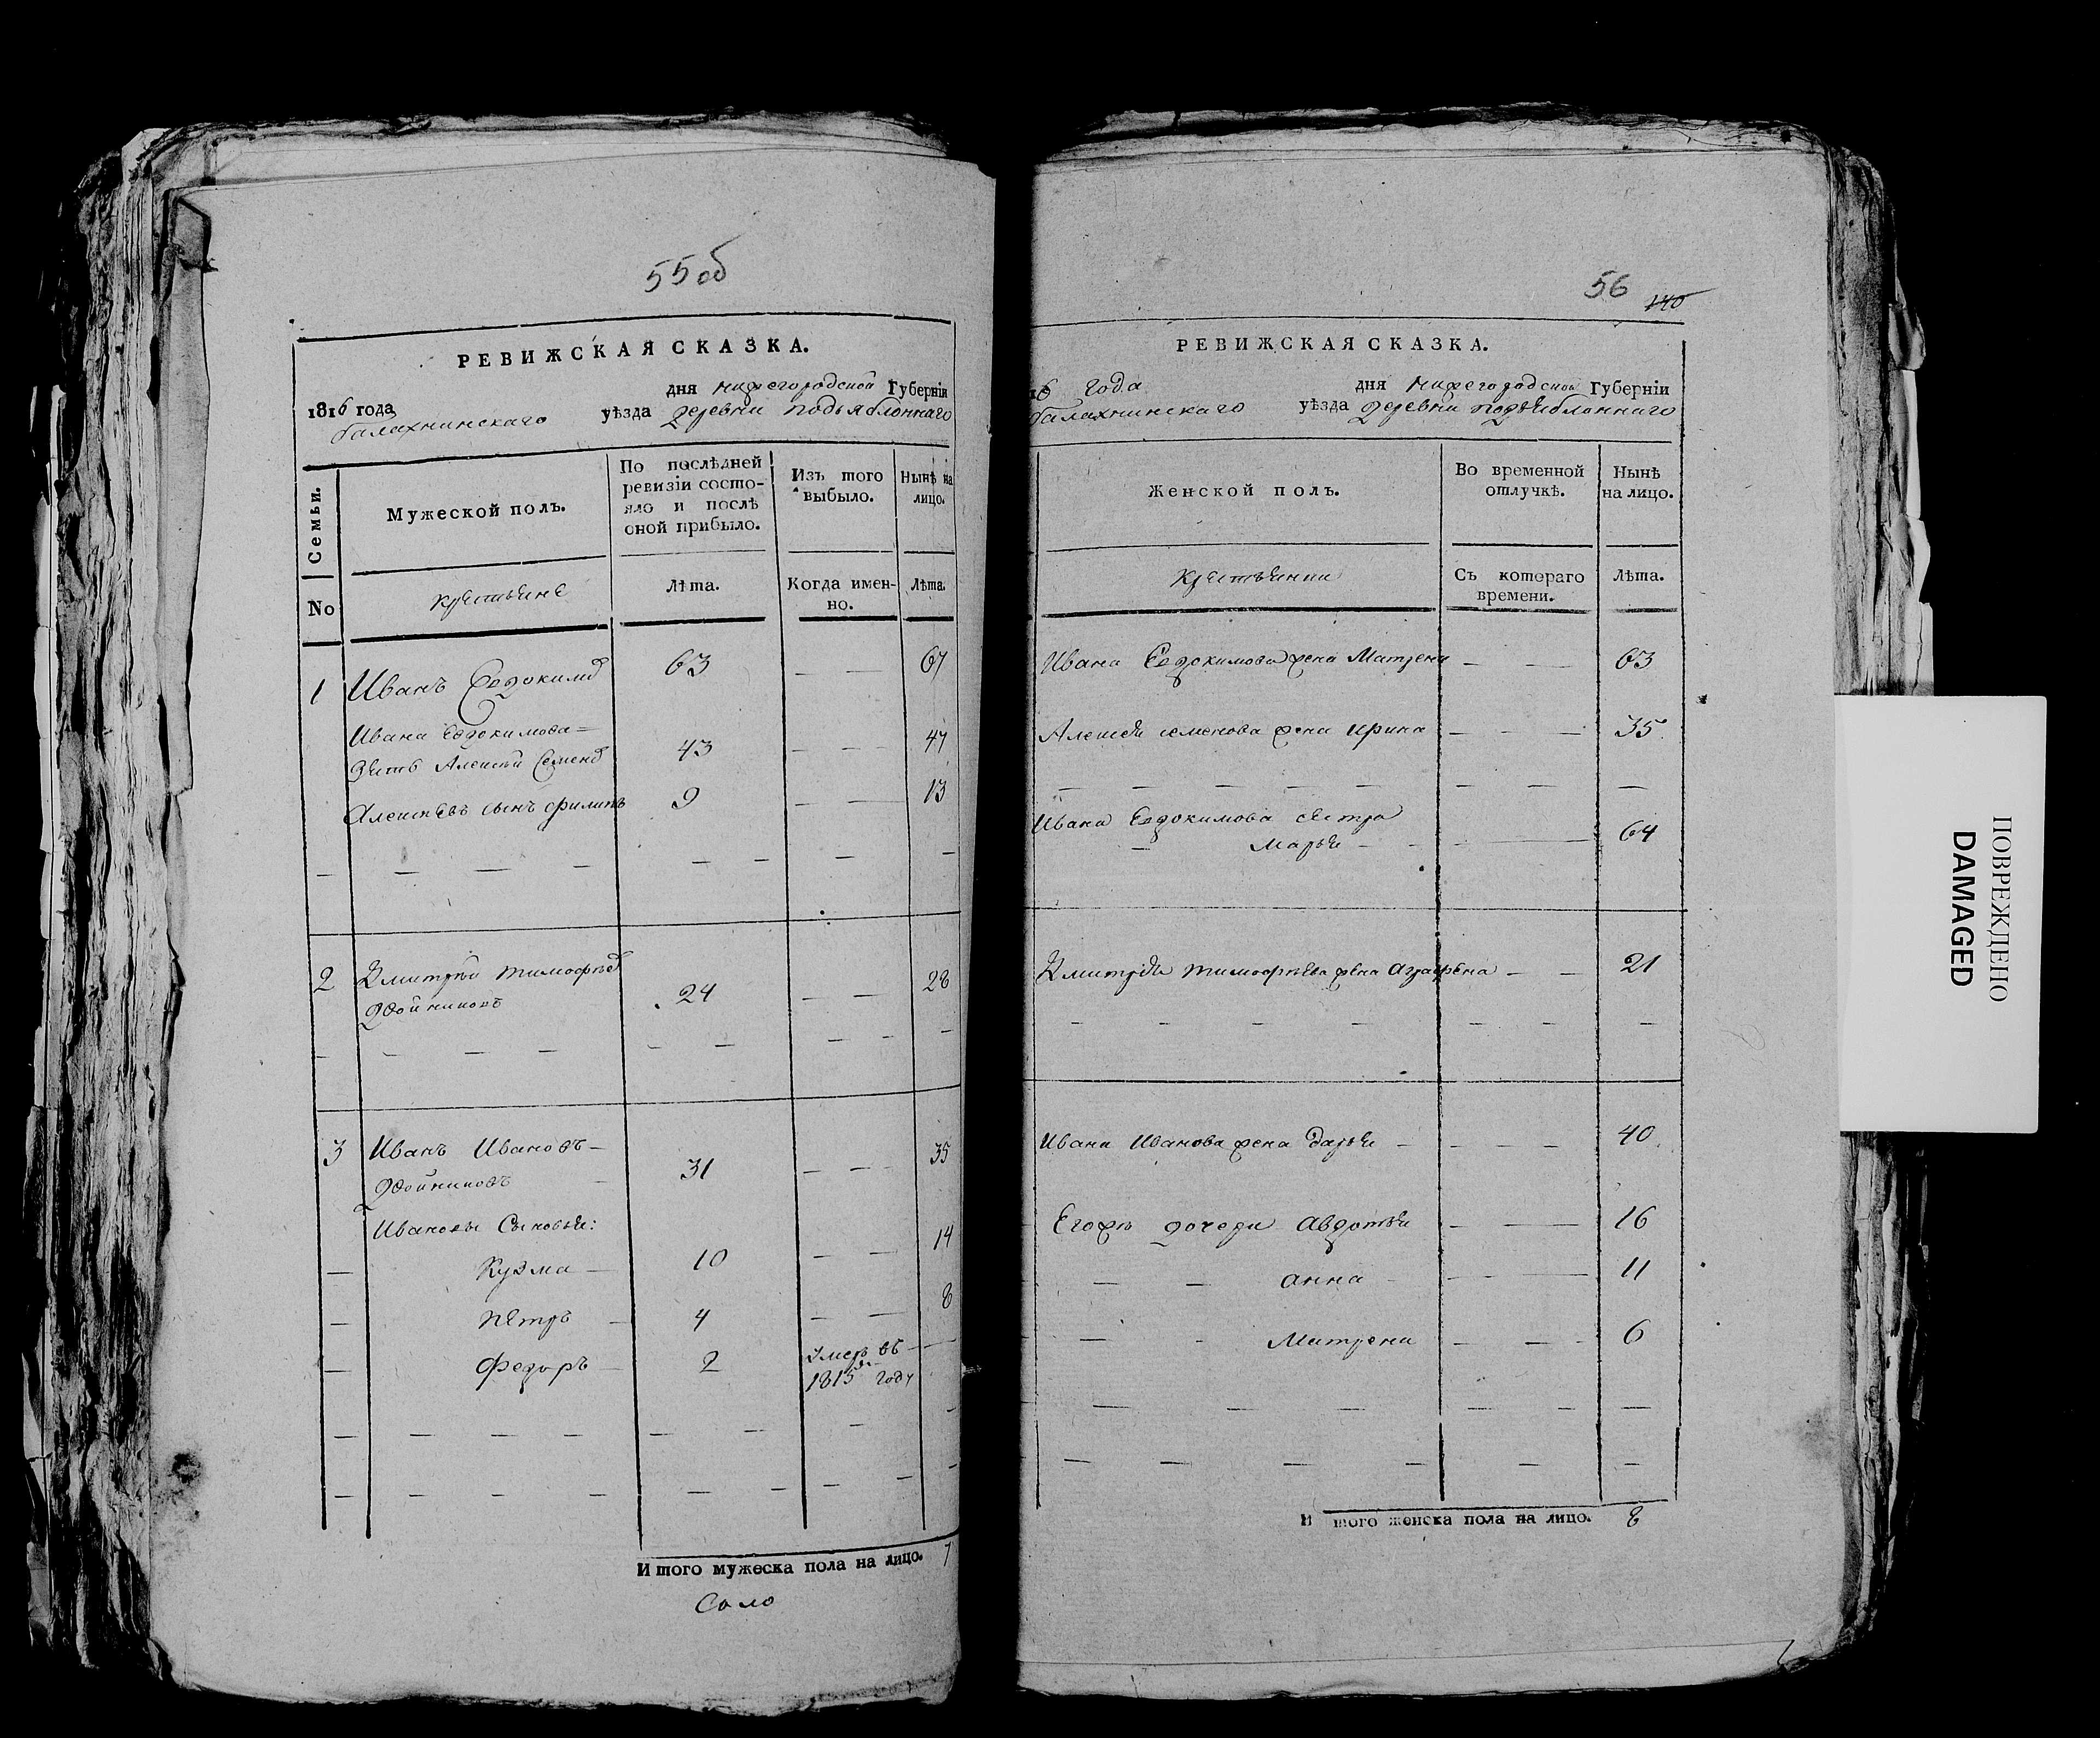 55об
РЕВИЖСКАЯ СКАЗКА.
1816 года дня нижегородской Губернїи
балахнинскаго уѣзда деревни подьяблоннаго
Семьи.
Мужеской полъ.
По послѣдней ревизїи состояло и послѣ оной прибыло.
Изъ того выбыло.
Нынѣ на лицо.
No
крестьяне
Лѣта.
Когда именно.
Лѣта.
1 Иванъ Евдокимовъ 63 — — 67
Ивана Евдокимова =
зять Алексѣй Семеновъ 43 — — 47
Алексѣевъ сынъ филипъ 9 — — 13
2 Дмитрѣй тимофѣевъ
двойниковъ 24 — — 28
3 Иванъ Ивановъ —
двойниковъ 31 — — 35
Ивановы Сыновья:
Кузма — 10 — — 14
петръ — 4 — — 8
федоръ — 2 умеръ въ —
1815м году
Итого мужеска пола на лицо. 7
56
140
РЕВИЖСКАЯ СКАЗКА.
16 года дня нижегородской Губернїи
балахнинскаго уѣзда деревни подьяблоннаго
Женской полъ.
Во временной отлучкѣ.
Нынѣ на лицо.
крестьянки
Съ котораго времени.
Лѣта.
Ивана Евдокимова жена Матрена — — 63
Алексѣя семенова жена ирина — — — 35
Ивана Евдокимова сестра
марья — — 64
Дмитрѣя тимофѣева жена аграфена — — 21
Ивана Иванова жена дарья — — — 40
Егожъ дочери авдотья — — 16
анна — — 11
матрена — — — 6
Итого женска пола на лицо. 8
ПОВРЕЖДЕНО
DAMAGED